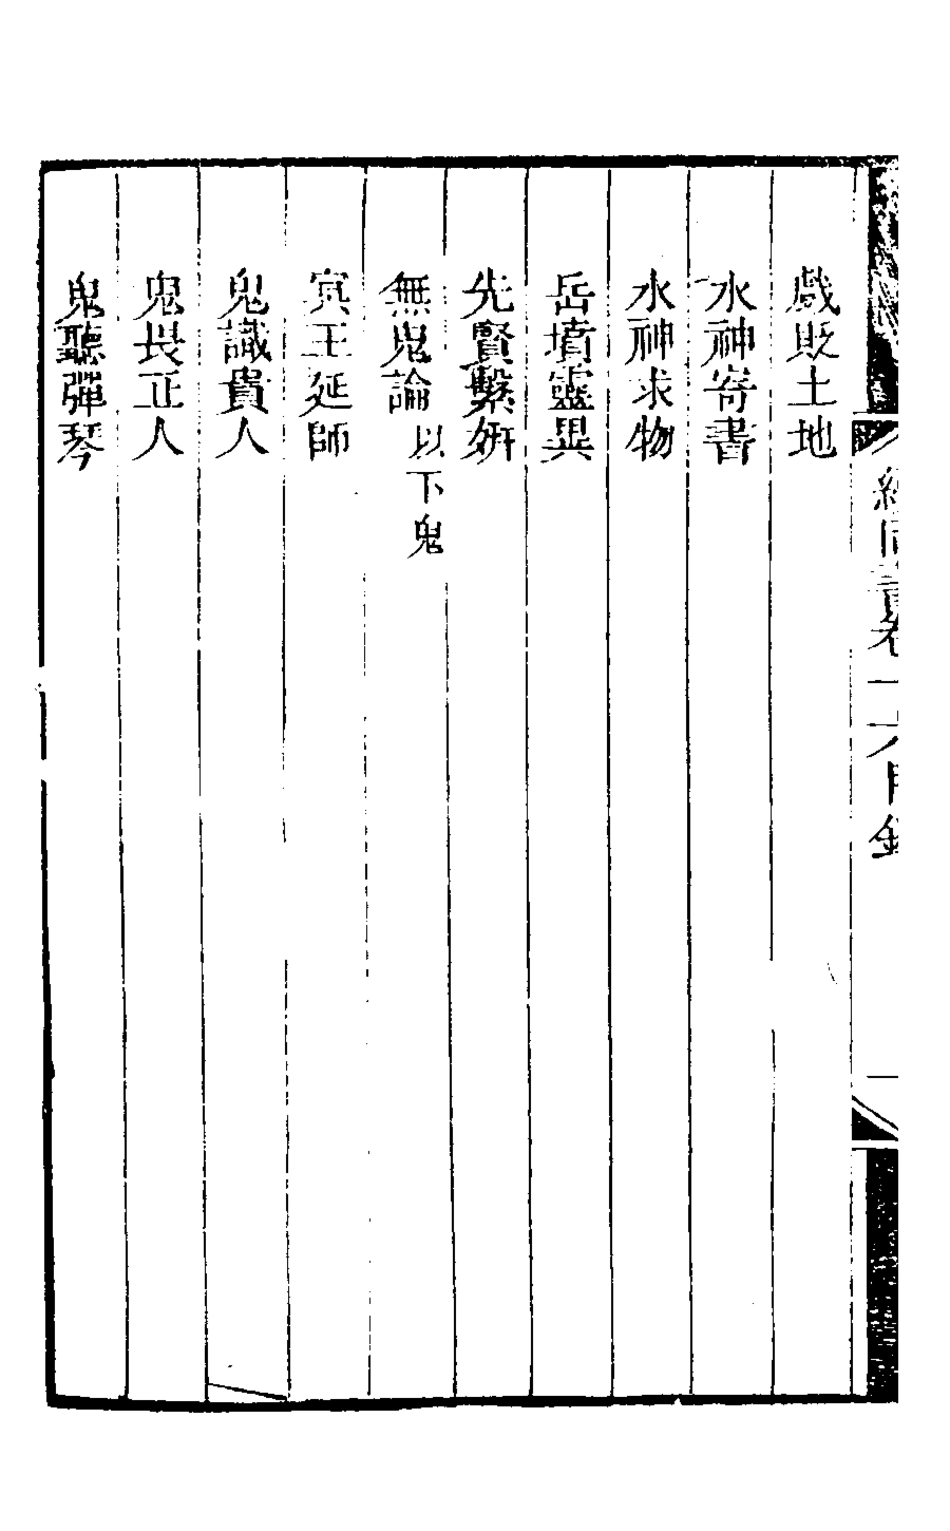 續同書卷十六目錄 一
戲貶土地
水神寄書
水神求物
岳墳靈異
先賢繫姸
無鬼論以下鬼
冥王延師
鬼識貴人
鬼畏正人
鬼聽彈琴